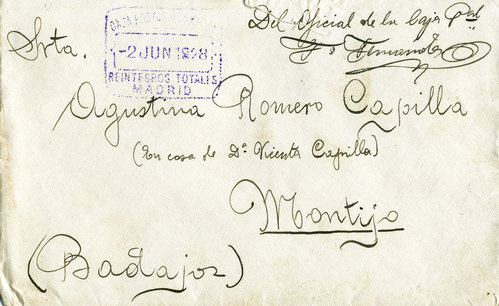 Del Oficial de la Caja Pral
Fernández
Srta.
CAJA POSTAL
-2 JUN 1928
REINTEGROS TOTALES
MADRID
Agustina Romero Capilla
(En casa de Dª Vicenta Capilla)
Montijo
(Badajoz)